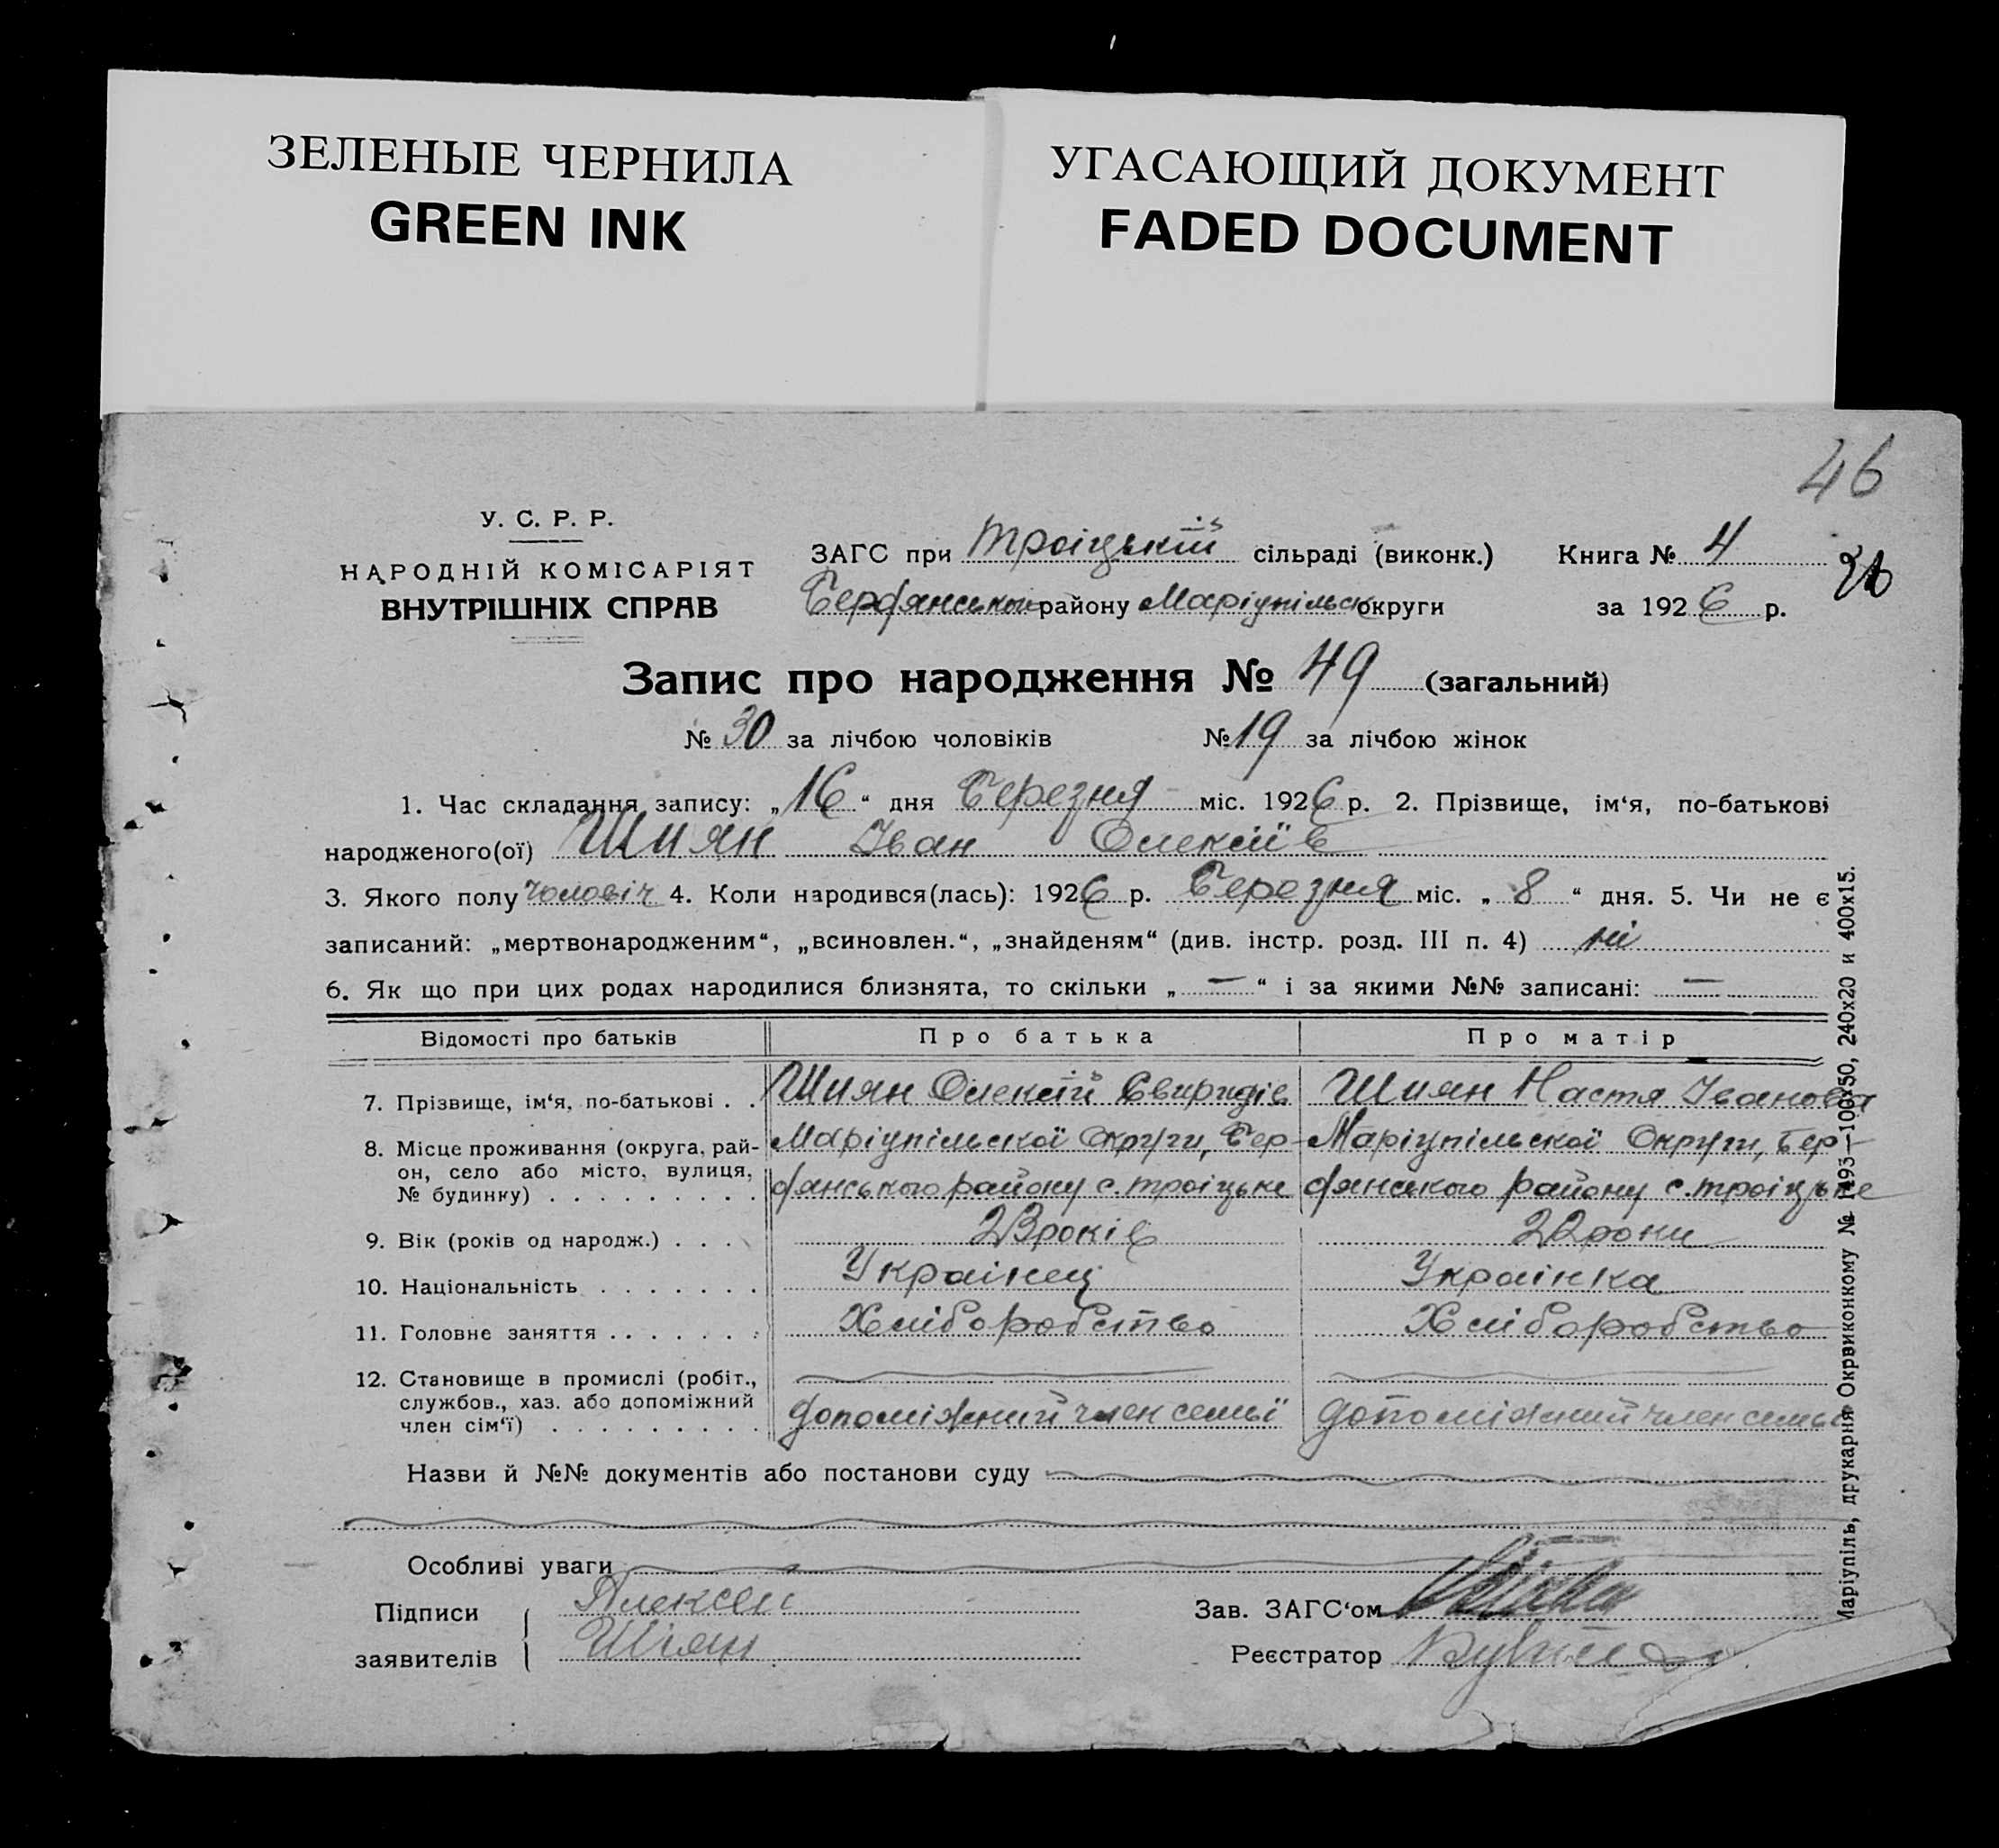 ЗЕЛЕНЫЕ ЧЕРНИЛА
GREEN INK
УГАСАЮЩИЙ ДОКУМЕНТ
FADED DOCUMENT
46
26
У. С. Р. Р.
НАРОДНІЙ КОМІСАРІЯТ
ВНУТРІШНІХ СПРАВ
ЗАГС при Троіцькій сільраді (виконк.) Книга № 4
Бердянського району Маріупільск округи за 1926 р.
Запис про народження № 49 (загальний)
№ 30 за лічбою чоловіків № 19 за лічбою жінок
1. Час складання запису: „16“ дня Березня міс. 1926 р. 2. Прізвище, ім‘я, по-батькові
народженого(ої) Шиян Іван Олексіїв
3. Якого полу чоловіч 4. Коли народився(лась): 1926 р. Березня міс. „8“ дня. 5. Чи не є
записаний: „мертвонародженим“, „всиновлен.“, „знайденям“ (див. інстр. розд. III п. 4) ні
6. Як що при цих родах народилися близнята, то скільки „—“ і за якими №№ записані: —
Відомості про батьків Про батька Про матір
7. Прізвище, ім‘я, по-батькові . . Шиян Олексій Свиридів Шиян Настя Іванова
8. Місце проживання (округа, рай- Маріупільскої Округи, Бер- Маріупільскої Округи, Бер-
он, село або місто, вулиця, дянського району с. Троіцьке дянського району с. Троіцьке
№ будинку) . . . . . . . . .
9. Вік (років од народж.) . . . 23 років 22 роки
10. Національність . . . . . . . Украінец Украінка
11. Головне заняття . . . . . . . Хліборобство Хліборобство
12. Становище в промислі (робіт.,
службов., хаз. або допоміжний допоміжний член семьї допоміжний член семьї
член сім‘ї) . . . . . . . . .
Назви й №№ документів або постанови суду
Особливі уваги
Підписи Алексей Зав. ЗАГС‘ом
заявителів Шіян Реєстратор
Маріупіль, друкарня Окрвиконкому № 1493—100х50, 240х20 и 400х15.